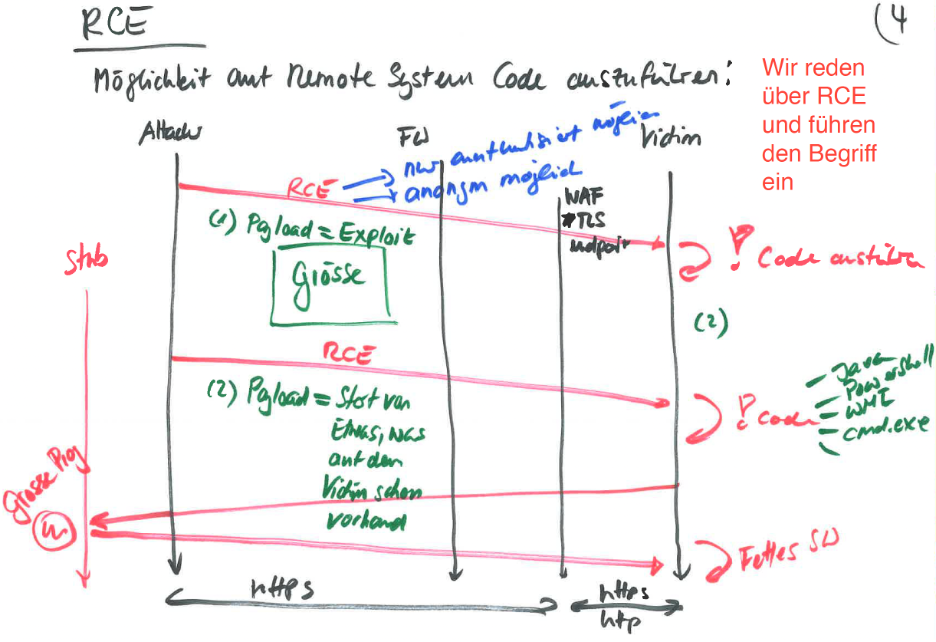 RCE
(4
Möglichkeit auf Remote System Code auszuführen:
Wir reden
über RCE
und führen
den Begriff
ein
FW
Victim
nur authentisiert möglich
anonym möglich
RCE
WAF
TLS
(1) Payload = Exploit
Grösse
! Code ausführen
(2)
RCE
(2) Payload = Start von
auf dem
Victim schon
vorhand
! code
Java
Powershell
WMI
cmd.exe
Grosse Prog
Fettes SW
https
https
http